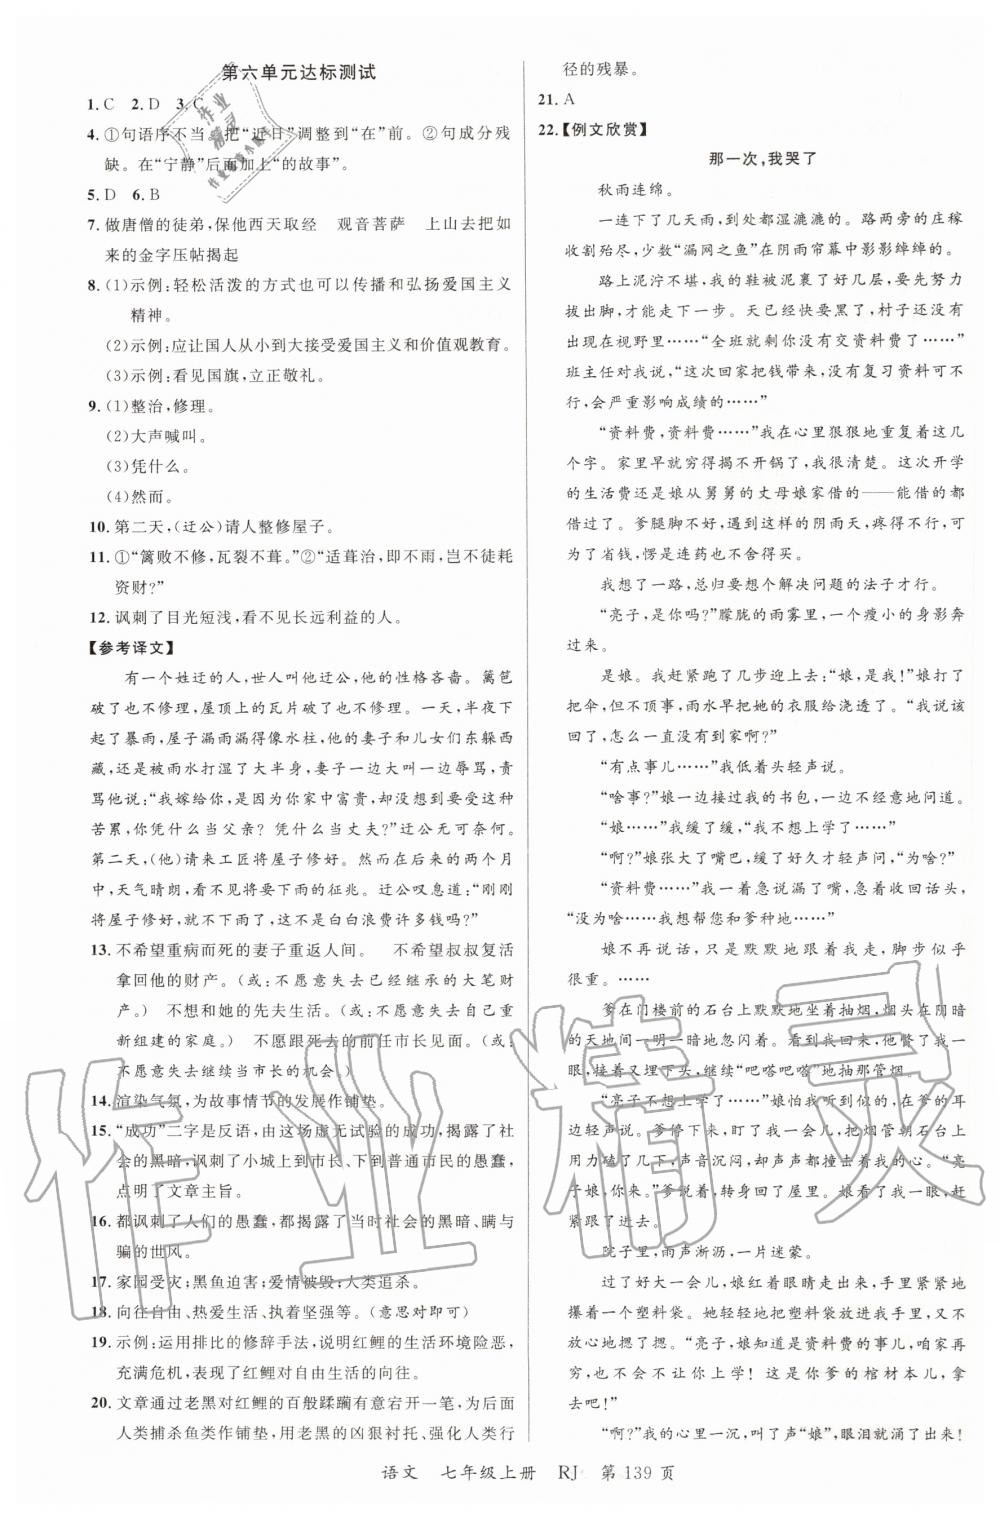 第六单元达标测试
1. C  2. D  3. C
4. ①句语序不当。把“近日”调整到“在”前。②句成分残
缺。在“宁静”后面加上“的故事”。
5. D  6. B
7. 做唐僧的徒弟,保他西天取经  观音菩萨  上山去把如
来的金字压帖揭起
8. (1)示例:轻松活泼的方式也可以传播和弘扬爱国主义
精神。
(2)示例:应让国人从小到大接受爱国主义和价值观教育。
(3)示例:看见国旗,立正敬礼。
9. (1)整治,修理。
(2)大声喊叫。
(3)凭什么。
(4)然而。
10. 第二天,(迂公)请人整修屋子。
11. ①“篱败不修,瓦裂不葺。”②“适葺治,即不雨,岂不徒耗
资财?”
12. 讽刺了目光短浅,看不见长远利益的人。
【参考译文】
有一个姓迂的人,世人叫他迂公,他的性格吝啬。篱笆
破了也不修理,屋顶上的瓦片破了也不修理。一天,半夜里
起了暴雨,屋子漏雨漏得像水柱,他的妻子和儿女们东躲西
藏,还是被雨水打湿了大半身,妻子一边大叫一边辱骂,责
骂他说:“我嫁给你,是因为你家中富贵,却没想到受到这种
苦累,你凭什么当父亲? 凭什么当丈夫?”迂公无可奈何。
第二天,(他)请来工匠将屋子修好。然而在后来的两个月
中,天气晴朗,看不到将要下雨的征兆。迂公叹息道:“刚刚
将屋子修好,就不下雨了,这不是白白浪费许多钱吗?”
13. 不希望重病而死的妻子重返人间。  不希望叔叔复活
拿回他的财产。(或:不愿意失去已经继承的大笔财
产。)  不想和她的先夫生活。(或:不愿意失去已经重
新组建的家庭。)  不愿跟死去的前任市长见面。(或:
不愿意失去继续当市长的机会。)
14. 渲染气氛,为故事情节的发展作铺垫。
15. “成功”二字是反语,由这场虚无试验的成功,揭露了社
会的黑暗,讽刺了小城上到市长、下到普通市民的愚蠢,
点明了文章主旨。
16. 都讽刺了人们的愚蠢,都揭露了当时社会的黑暗、瞒与
骗的世风。
17. 家园受灾;黑鱼迫害;爱情被毁;人类追杀。
18. 向往自由、热爱生活、执着坚强等。(意思对即可)
19. 示例:运用排比的修辞手法,说明红鲤的生活环境险恶,
充满危机,表现了红鲤对自由生活的向往。
20. 文章通过老黑对红鲤的百般蹂躏有意宕开一笔,为后面
人类捕杀鱼类作铺垫,用老黑的凶狠衬托、强化人类行
径的残暴。
21. A
22. 【例文欣赏】
那一次,我哭了
秋雨连绵。
一连下了几天雨,到处都湿漉漉的。路两旁的庄稼
收割殆尽,少数“漏网之鱼”在阴雨帘幕中影影绰绰的。
路上泥泞不堪,我的鞋被泥裹了好几层,每次努力
拔出脚,才能走下一步。天已经快要黑了,村子还没有
出现在视野里……“全班就剩你没有交资料费了……”
班主任对我说,“这次回家把钱带来,没有复习资料可不
行,会严重影响成绩的……”
“资料费,资料费……”我在心里狠狠地重复着这几
个字。家里早就穷得揭不开锅了,我很清楚。这次开学
的生活费还是娘从舅舅的丈母娘家借的——能借的都
借过了。爹腿脚不好,遇到这样的阴雨天,疼得不行,可
为了省钱,愣是连药也不舍得买。
我想了一路,总归要想个解决问题的法子才行。
“亮子,是你吗?”朦胧的雨雾里,一个瘦小的身影奔
过来。
是娘。我赶紧跑了几步迎上去:“娘,是我!”娘打了
把伞,但不顶事,雨水早把她的衣服给浇透了。“我说该
回了,怎么一直没有到家啊?”
“有点事儿……”我低着头轻声说。
“啥事?”娘一边接过我的书包,一边不经意地问道。
“娘……”我缓了缓,“我不想上学了……”
“啊?”娘张大了嘴巴,缓了好久才轻声问,“为啥?”
“资料费……”我一着急说漏了嘴,急忙收回话头,
“没为啥……我想帮您和爹种地……”
娘不再说话,只是默默地跟着我走,脚步似乎
很重。……
爹在门楼前的石台上默默地坐着抽烟,烟头在阴暗
的天地间一明一暗地忽闪着。看到我回来,他瞥了我一
眼,接着又埋下头,“吧嗒吧嗒”地抽那管烟。
“亮子不想上学了……”娘怕我听到似的,在爹的耳
边轻声说。爹停下来,盯了我一会儿,把烟管朝石台上
用力磕了几下,声音沉闷,却声声都撞击着我的心。“亮
子娘,你来。”爹说着,转身回了屋里。娘看了我一眼,赶
紧跟了进去。
院子里,雨声淅沥,一片迷蒙。
过了好一会儿,娘红着眼睛走出来,手里紧紧地
攥着一个塑料袋。她轻轻地把塑料袋放进我手里,又不
放心地摁了摁。“亮子,娘知道是资料费的事儿,咱家再
穷,也不会不让你上学!这是你爹的棺材本儿,拿
去吧!”
“啊?”我的心里一沉,叫了声“娘”,眼泪唰地流了下来!
语文  七年级上册  RJ  第 139 页
作业精灵